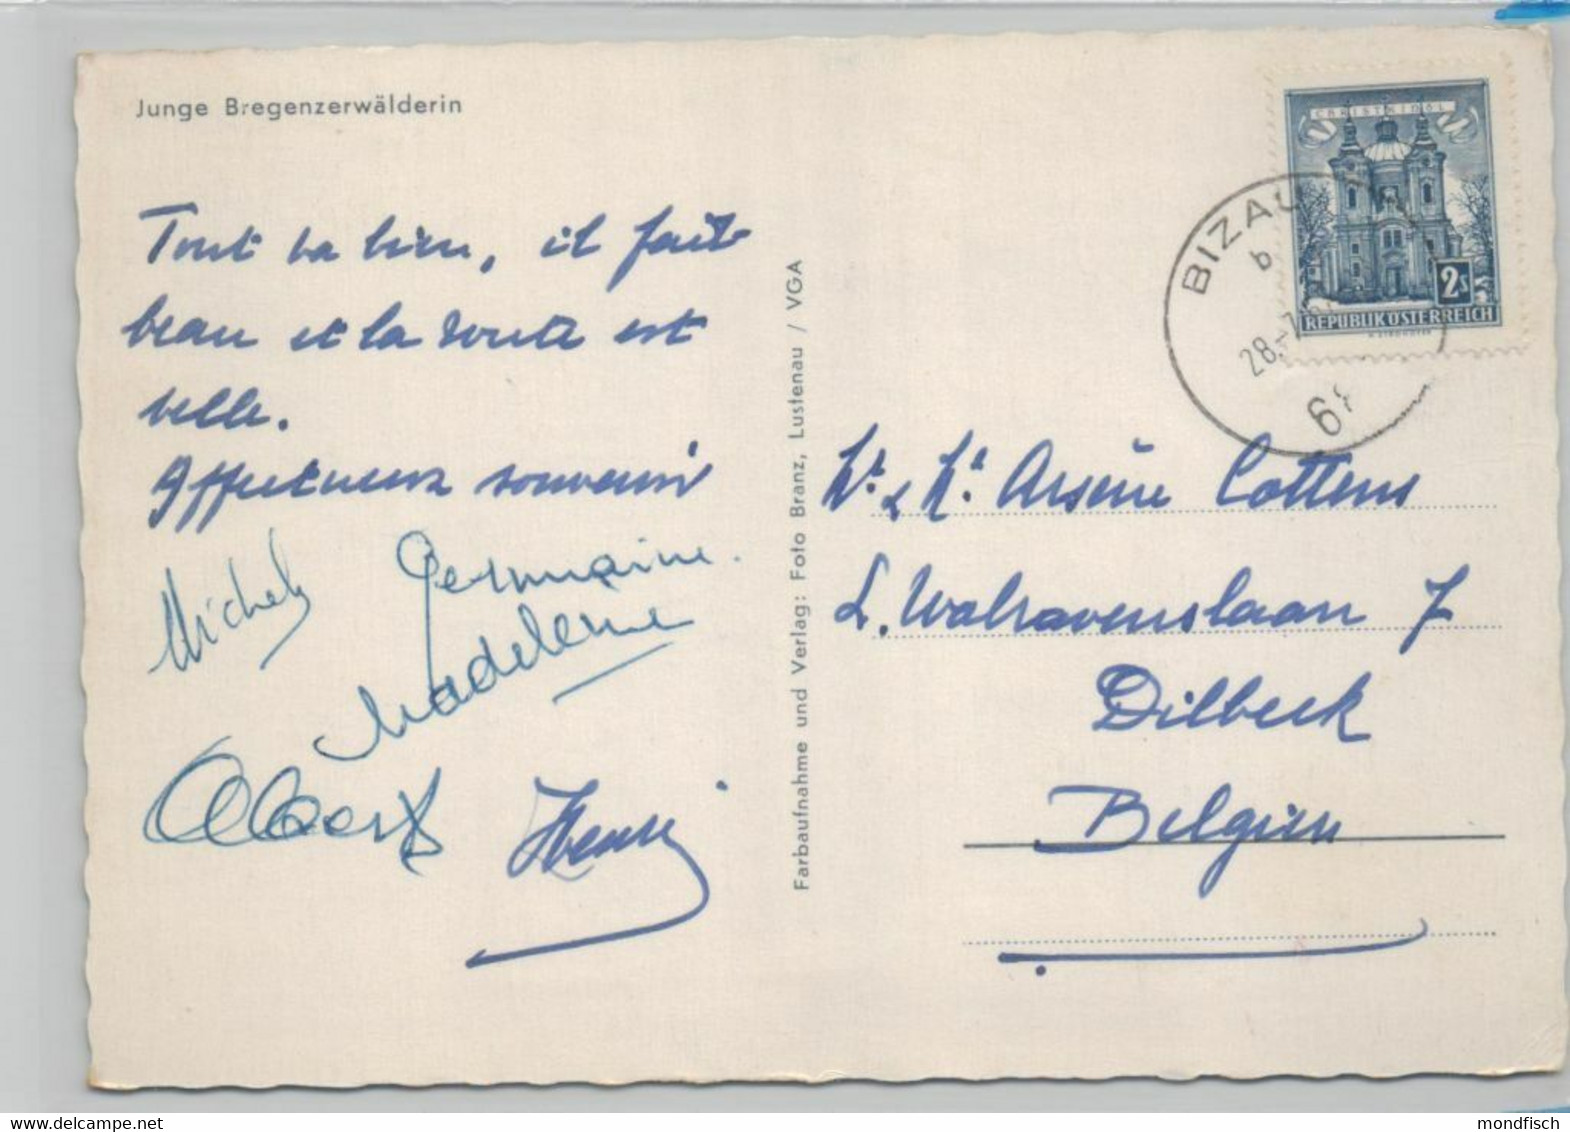 Junge Bregenzerwälderin
Tout va bien, il fait
beau et la route est
belle.
Affectueux souvenir
Michel Germaine.
Madeleine
Albert Henri
Farbaufnahme und Verlag: Foto Branz, Lustenau / VGA
CHRISTKINDL
2s
REPUBLIK ÖSTERREICH
BIZAU
b
28.-7
68
Mr & Mme Arsène Cottens
L. Walravenslaan 7
Dilbeek
Belgien
mondfisch